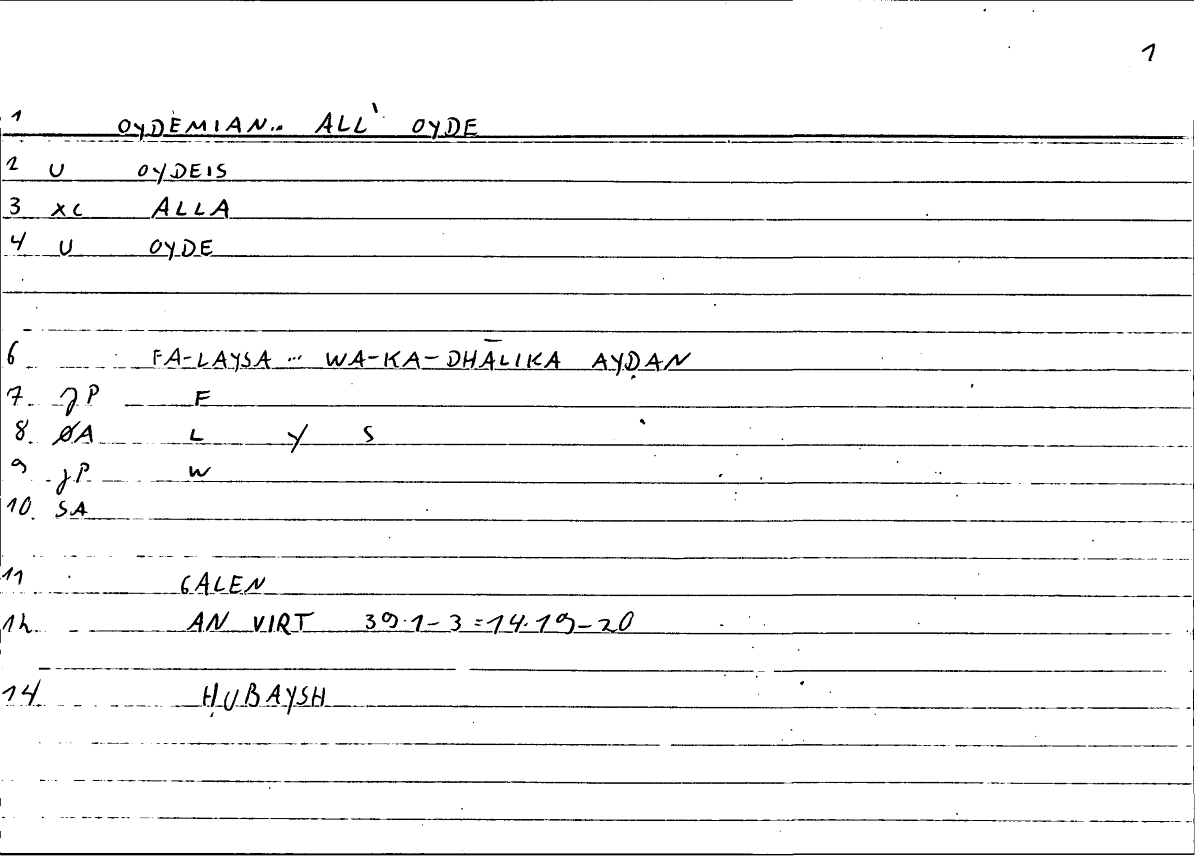 1
1 OYDEMIAN.. ALL' OYDE
2 U OYDEIS
3 XC ALLA
4 U OYDE
6 FA-LAYSA ... WA-KA-DHĀLIKA AYḌAN
7 JP F
8 ØA L Y S
9 JP W
10 SA
11 GALEN
12 AN VIRT 39.1-3=14.19-20
14 ḤUBAYSH